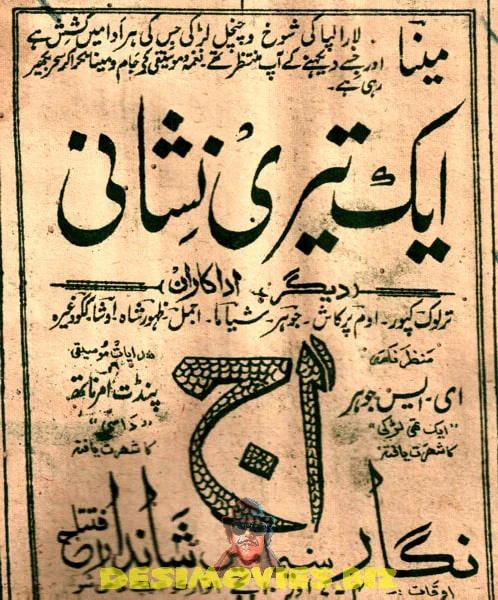 مینا
لارا لپا کی شوخ و چنچل لڑکی جس کی ہر ادا میں کشش ہے
اور جسے دیکھنے کے آپ منتظر تھے۔ نغمہ و موسیقی کے جام و مینا بکھیر
رہی ہے۔
ایک تیری نشانی
دیگر اداکاران
ترلوک کپور۔ اوم پرکاش۔ جوہر۔ شیاما۔ اجمل۔ ظہور شاہ۔ اوشا۔ ککو وغیرہ
منظر نامہ
ای۔ ایس جوہر
"ایک تھی لڑکی"
کا شہرت یافتہ
ہدایات موسیقی
پنڈت امرناتھ
"داسی"
کا شہرت یافتہ
آج
نگار سنیما شاندار افتتاح
اوقات
DESIMOVIES.BIZ